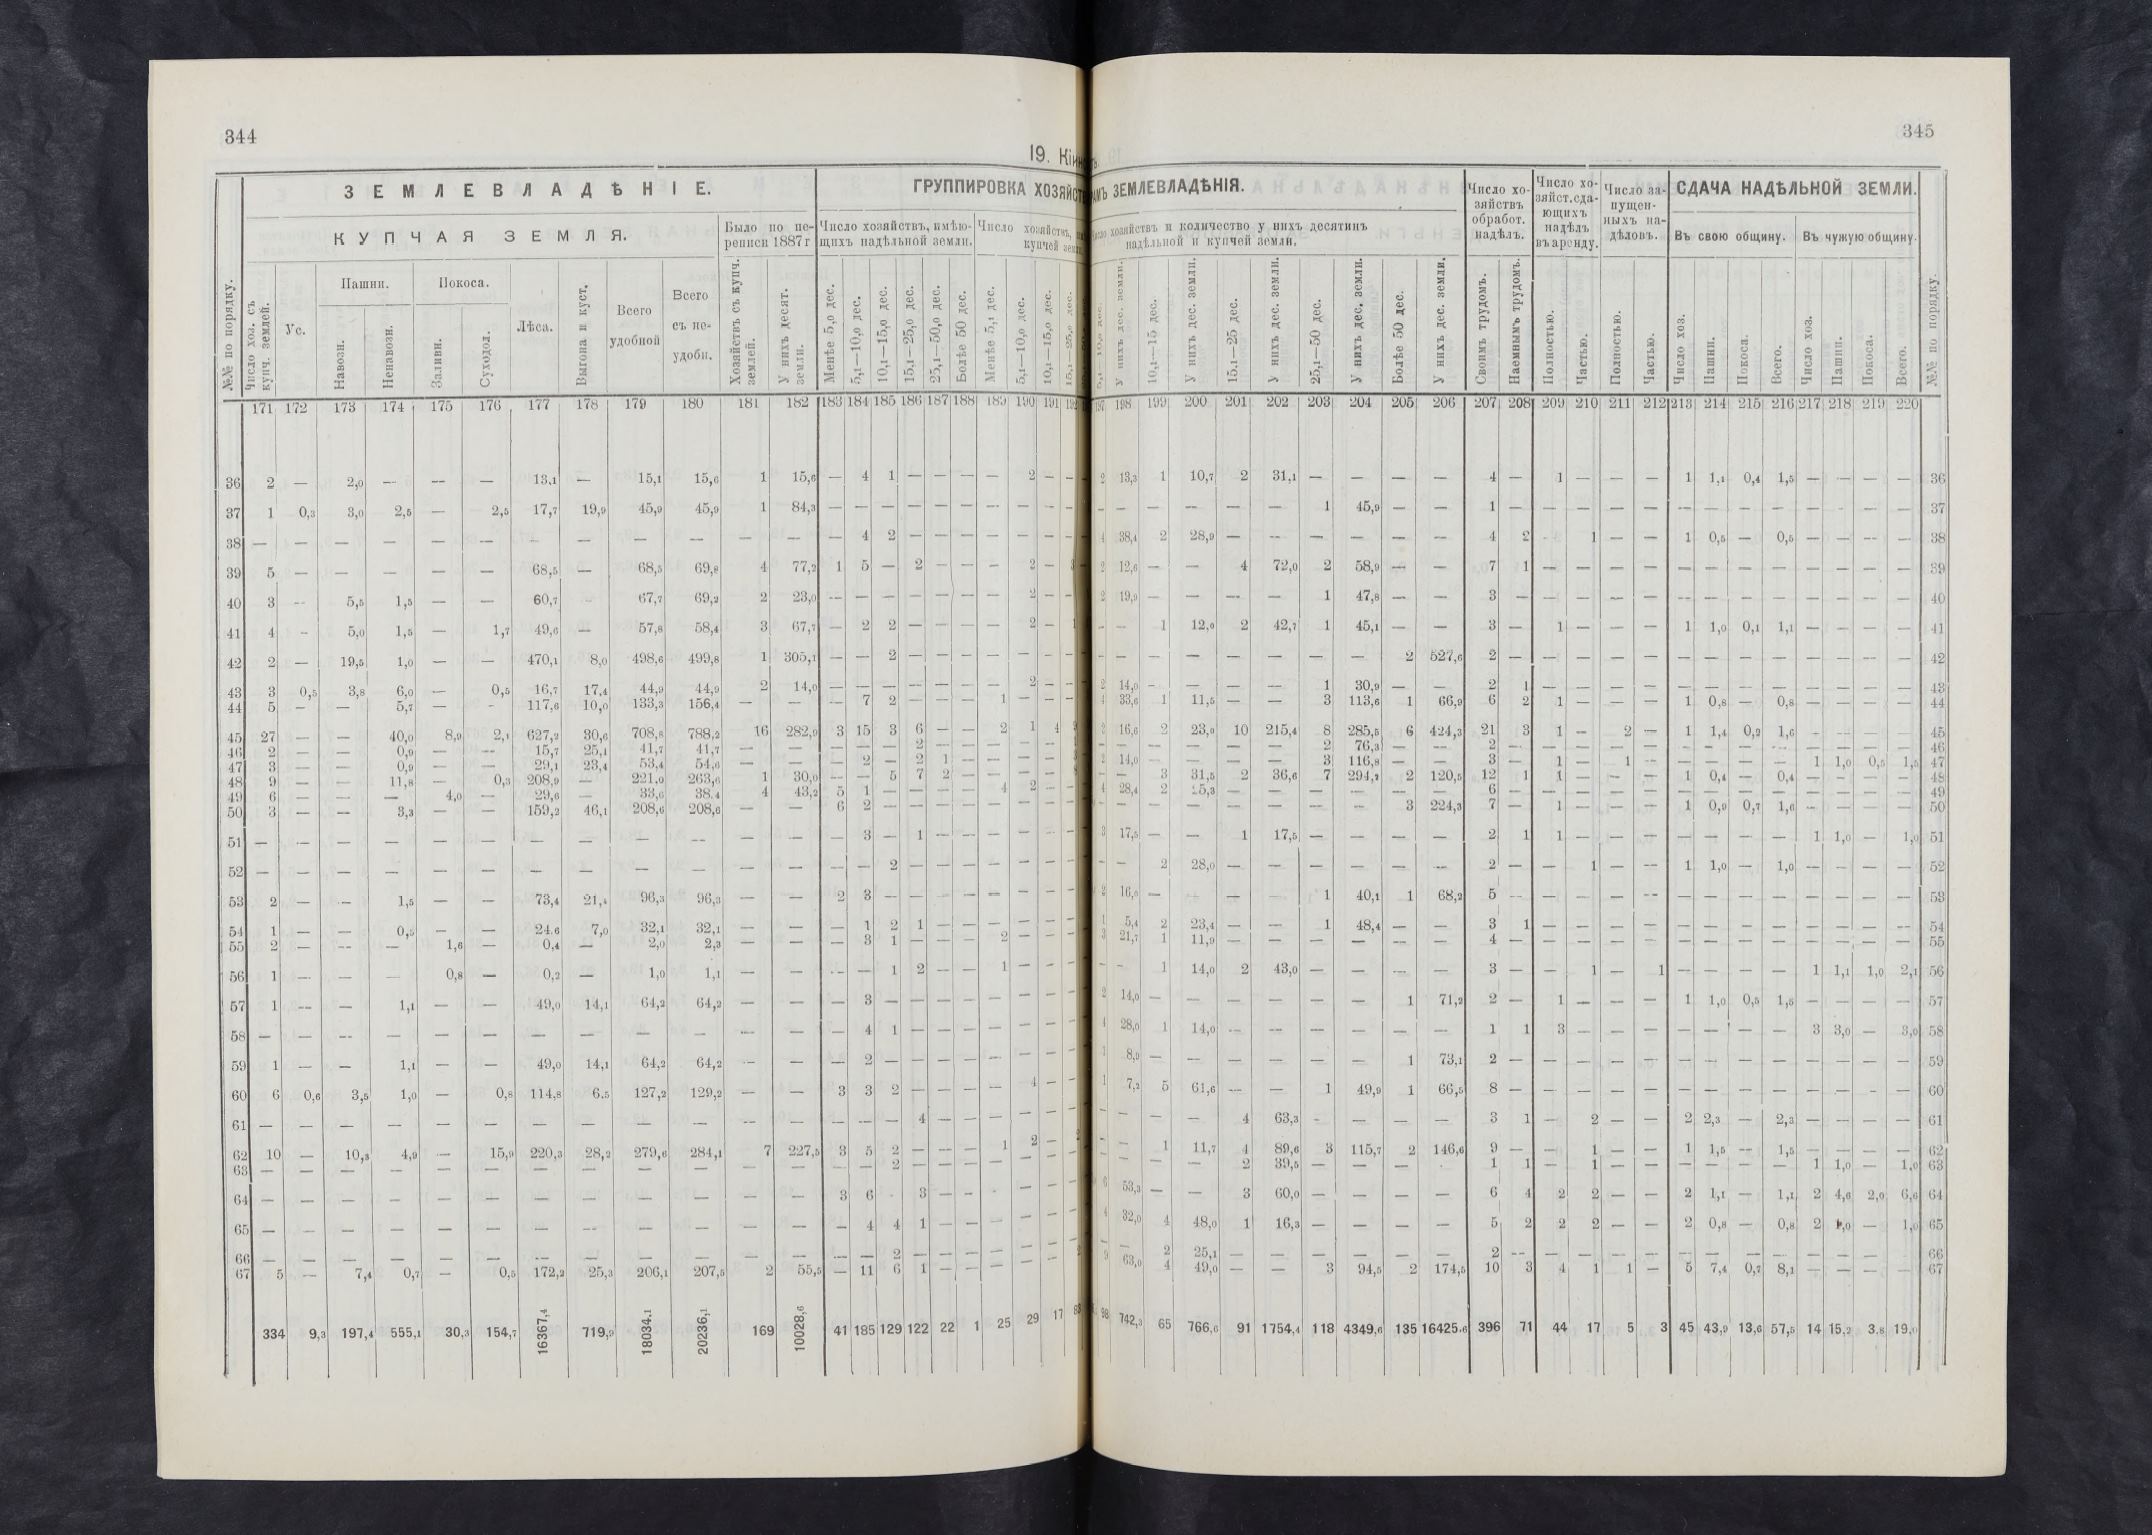 344
345
19. Кінн
ЗЕМЛЕВЛАДѢНІЕ.
КУПЧАЯ ЗЕМЛЯ.
Было по пе-
реписи 1887 г
ГРУППИРОВКА ХОЗЯЙСТВ
АМЪ ЗЕМЛЕВЛАДѢНІЯ.
Число хозяйствъ, имѣю-
щихъ надѣльной земли.
Число хозяйствъ,
купчей земл
хозяйствъ и количество у нихъ десятинъ
надѣльной и купчей земли.
Число хо-
зяйствъ
обработ.
надѣлъ.
Число хо-
зяйст.сда-
ющихъ
надѣлъ
въ аренду.
Число за-
пущен-
ныхъ на-
дѣловъ.
СДАЧА НАДѢЛЬНОЙ ЗЕМЛИ.
Въ свою общину. Въ чужую общину.
№№ по порядку.
Число хоз. съ купч. землей.
Ус.
Пашни.
Навозн.
Ненавозн.
Покоса.
Заливн.
Суходол.
Лѣса.
Выгона и куст.
Всего удобной
Всего съ не- удобн.
Хозяйствъ съ купч. землей.
У нихъ десят. земли.
Менѣе 5,0 дес.
5,1—10,0 дес.
10,1—15,0 дес.
15,1—25,0 дес.
25,1—50,0 дес.
Болѣе 50 дес.
Менѣе 5,1 дес.
5,1—10,0 дес.
10,1—15,0 дес.
15,1—25,0 дес.
У нихъ дес. земли.
10,1—15 дес.
У нихъ дес. земли.
15,1—25 дес.
У нихъ дес. земли.
25,1—50 дес.
У нихъ дес. земли.
Болѣе 50 дес.
У нихъ дес. земли.
Своимъ трудомъ.
Наемнымъ трудомъ.
Полностью.
Частью.
Полностью.
Частью.
Число хоз.
Пашни.
Покоса.
Всего.
Число хоз.
Пашни.
Покоса.
Всего.
№№ по порядку.
171 172 173 174 175 176 177 178 179 180 181 182 183 184 185 186 187 188 189 190 191 192 197 198 199 200 201 202 203 204 205 206 207 208 209 210 211 212 213 214 215 216 217 218 219 220
36 2 — 2,0 — — — 13,1 — 15,1 15,6 1 15,6 — 4 1 — — — — 2 — — 2 13,3 1 10,7 2 31,1 — — — — 4 — 1 — — — 1 1,1 0,4 1,5 — — — — 36
37 1 0,3 3,0 2,5 — 2,5 17,7 19,9 45,9 45,9 1 84,3 — — — — — — — — — — — — — — — — 1 45,9 — — 1 — — — — — — — — — — — — — 37
38 — — — — — — — — — — — — — 4 2 — — — — — — — 4 38,4 2 28,9 — — — — — — 4 2 - 1 — — 1 0,5 — 0,5 — — — — 38
39 5 — — — — — 68,5 — 68,5 69,8 4 77,2 1 5 — 2 — — — 2 — 3 2 12,6 — — 4 72,0 2 58,9 — — 7 1 — — — — — — — — — — — — 39
40 3 — 5,5 1,5 — — 60,7 - 67,7 69,2 2 23,0 — — — — — — — 2 — — 2 19,9 — — — — 1 47,8 — — 3 — — — — — — — — — — — — — 40
41 4 - 5,0 1,5 — 1,7 49,6 — 57,8 58,4 3 67,7 — 2 2 — — — — 2 — 1 — — 1 12,0 2 42,7 1 45,1 — — 3 — 1 — — — 1 1,0 0,1 1,1 — — — — 41
42 2 — 19,5 1,0 — — 470,1 8,0 498,6 499,8 1 305,1 — — 2 — — — — — — — — — — — — — — — 2 527,6 2 — — — — — — — — — — — — — 42
43 3 0,5 3,8 6,0 — 0,5 16,7 17,4 44,9 44,9 2 14,0 — — — — — — — 2 — — 2 14,0 — — — — 1 30,9 — — 2 1 — — — — — — — — — — — — 43
44 5 — — 5,7 — - 117,6 10,0 133,3 156,4 — — — 7 2 — — — 1 — — — 4 33,6 1 11,5 — — 3 113,6 1 66,9 6 2 1 — — — 1 0,8 — 0,8 — — — — 44
45 27 — — 40,0 8,9 2,1 627,2 30,6 708,8 788,2 16 282,9 3 15 3 6 — — 2 1 4 2 16,6 2 23,0 10 215,4 8 285,5 6 424,3 21 3 1 — 2 — 1 1,4 0,2 1,6 — — — — 45
46 2 — — 0,9 — — 15,7 25,1 41,7 41,7 — — — — — 2 — — — — — — — — — — — 2 76,3 — — 2 — — — — — — — — — — — — — 46
47 3 — — 0,9 — — 29,1 23,4 53,4 54,6 — — — 2 — 2 1 — — — — 2 14,0 — — — — 3 116,8 — — 3 — 1 — 1 — — — — — 1 1,0 0,5 1,5 47
48 9 — — 11,8 — 0,3 208,9 — 221,0 263,6 1 30,0 — — 5 7 2 — — — — — — 3 31,5 2 36,6 7 294,2 2 120,5 12 1 1 — — — 1 0,4 — 0,4 — — — — 48
49 6 — — — 4,0 — 29,6 — 33,6 38,4 4 43,2 5 1 — — — — 4 2 — — 4 28,4 2 25,3 — — — — — — 6 — — — — — — — — — — — — — 49
50 3 — — 3,3 — — 159,2 46,1 208,6 208,6 — — 6 2 — — — — — — — — — — — — — — — — 3 224,3 7 — 1 — — — 1 0,9 0,7 1,6 — — — — 50
51 — — — — — — — — — — — — — 3 — 1 — — — — — — 3 17,5 — — 1 17,5 — — — — 2 1 1 — — — — — — — 1 1,0 — 1,0 51
52 — — — — — — — — — — — — — — 2 — — — — — — — — — 2 28,0 — — — — — — 2 — — 1 — — 1 1,0 — 1,0 — — — — 52
53 2 — — 1,5 — — 73,4 21,4 96,3 96,3 — — 2 3 — — — — — — — — 2 16,0 — — — — 1 40,1 1 68,2 5 — — — — — — — — — — — — — 53
54 1 — — 0,5 — — 24,6 7,0 32,1 32,1 — — — 1 2 1 — — — — — — 1 5,4 2 23,4 — — 1 48,4 — — 3 1 — — — — — — — — — — — — 54
55 2 — — — 1,6 — 0,4 — 2,0 2,3 — — — 3 1 — — — 2 — — — 3 21,7 1 11,9 — — — — — — 4 — — — — — — — — — — — — — 55
56 1 — — — 0,8 — 0,2 — 1,0 1,1 — — — — 1 2 — — 1 — — — — — 1 14,0 2 43,0 — — — — 3 — — 1 — 1 — — — — 1 1,1 1,0 2,1 56
57 1 — — 1,1 — — 49,0 14,1 64,2 64,2 — — — 3 — — — — — — — — 2 14,0 — — — — — — 1 71,2 2 — 1 — — — 1 1,0 0,5 1,5 — — — — 57
58 — — — — — — — — — — — — — 4 1 — — — — — — — 4 28,0 1 14,0 — — — — — — 1 1 3 — — — — — — — 3 3,0 — 3,0 58
59 1 — — 1,1 — — 49,0 14,1 64,2 64,2 — — — 2 — — — — — — — — 1 8,9 — — — — — — 1 73,1 2 — — — — — — — — — — — — — 59
60 6 0,6 3,5 1,0 — 0,8 114,8 6,5 127,2 129,2 — — 3 3 2 — — — — 4 — — 1 7,2 5 61,6 — — 1 49,9 1 66,5 8 — — — — — — — — — — — — — 60
61 — — — — — — — — — — — — — — — 4 — — — — — — — — — — 4 63,3 - — — — 3 1 — 2 — — 2 2,3 — 2,3 — — — — 61
62 10 — 10,3 4,9 — 15,9 220,3 28,2 279,6 284,1 7 227,5 3 5 2 — — — 1 2 — 2 — — 1 11,7 4 89,6 3 115,7 2 146,6 9 — — 1 — — 1 1,5 — 1,5 — — — — 62
63 — — — — — — — — — — — — — — 2 — — — — — — — — — — — 2 39,5 — — — - 1 1 — 1 — — — — — — 1 1,0 — 1,0 63
64 — — — — — — — — — — — — 3 6 - 3 — — - — — — 6 53,3 — — 3 60,0 — — — — 6 4 2 2 — — 2 1,1 — 1,1 2 4,6 2,0 6,6 64
65 — — — — — — — — — — — — — 4 4 1 — — — — — — 4 32,0 4 48,0 1 16,3 — — — — 5 2 2 2 — — 2 0,8 — 0,8 2 1,0 — 1,0 65
66 — — — — — — — — — — — — — — 2 — — — — — — — — — 2 25,1 — — — — — — 2 — — — — — — — — — — — — — 66
67 5 — 7,4 0,7 — 0,5 172,2 25,3 206,1 207,5 2 55,5 — 11 6 1 — — — — — 2 9 63,0 4 49,0 — — 3 94,5 2 174,5 10 3 4 1 1 — 5 7,4 0,7 8,1 — — — — 67
334 9,3 197,4 555,1 30,3 154,7 16367,4 719,9 18034,1 20236,1 169 10028,6 41 185 129 122 22 1 25 29 17 83 98 742,3 65 766,6 91 1754,4 118 4349,6 135 16425,6 396 71 44 17 5 3 45 43,9 13,6 57,5 14 15,2 3,8 19,0